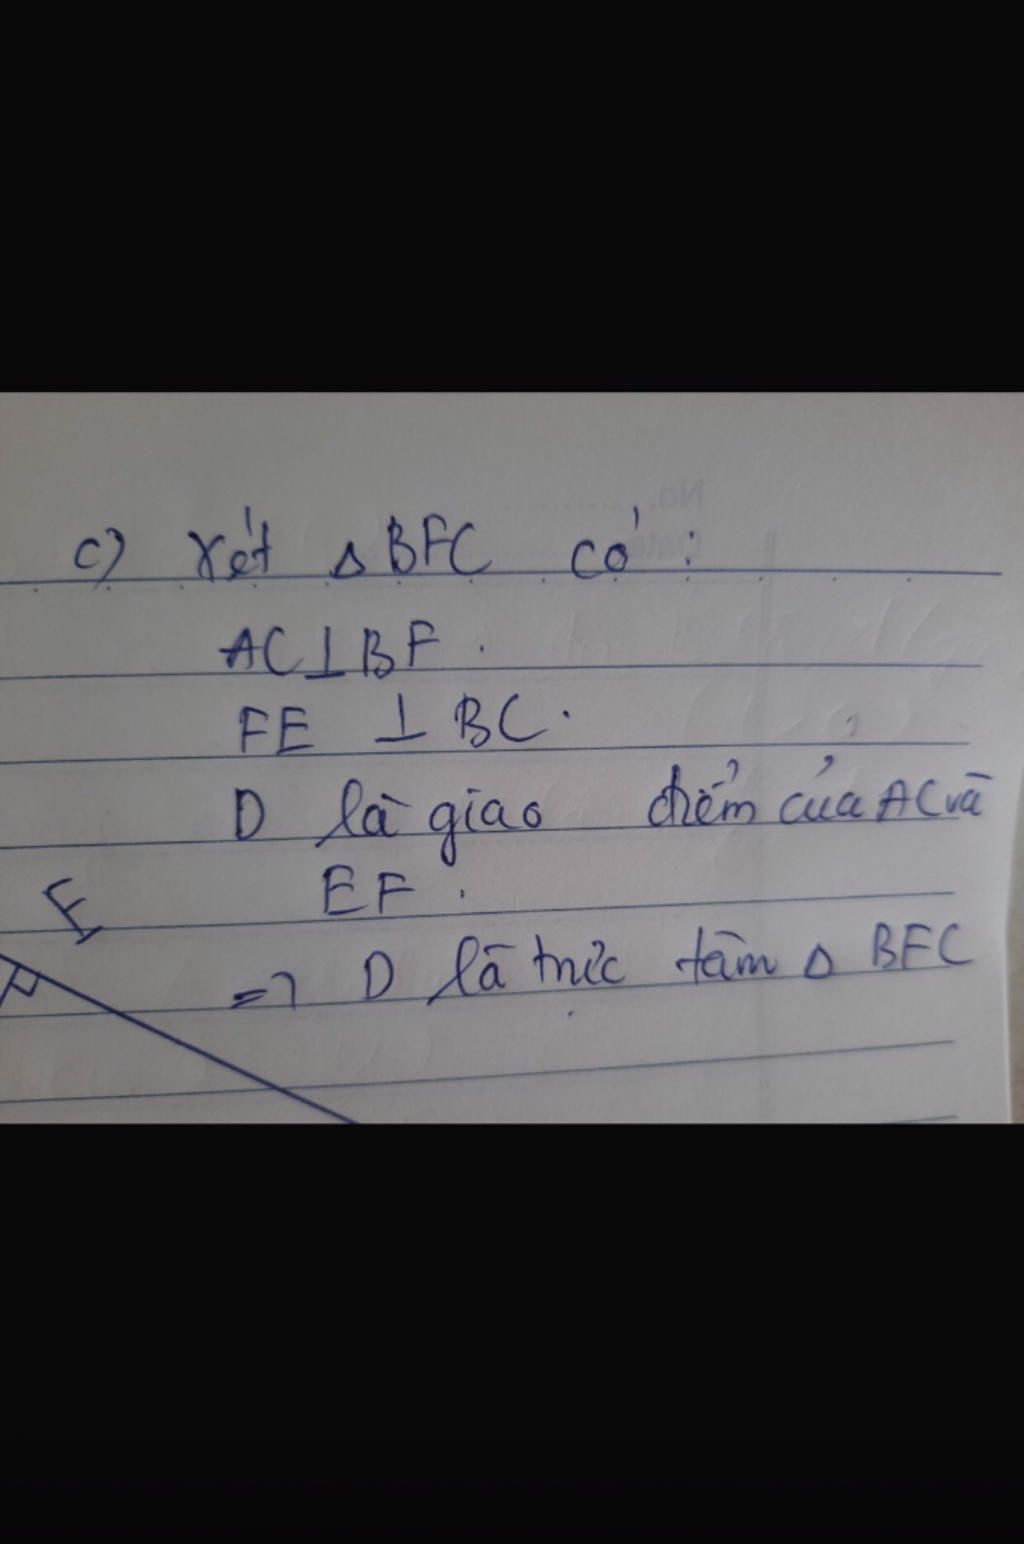 No.
Date
c) Xét △BFC có:
AC⊥BF.
FE ⊥ BC.
D là giao điểm của AC và
EF.
E
=> D là trực tâm △ BFC